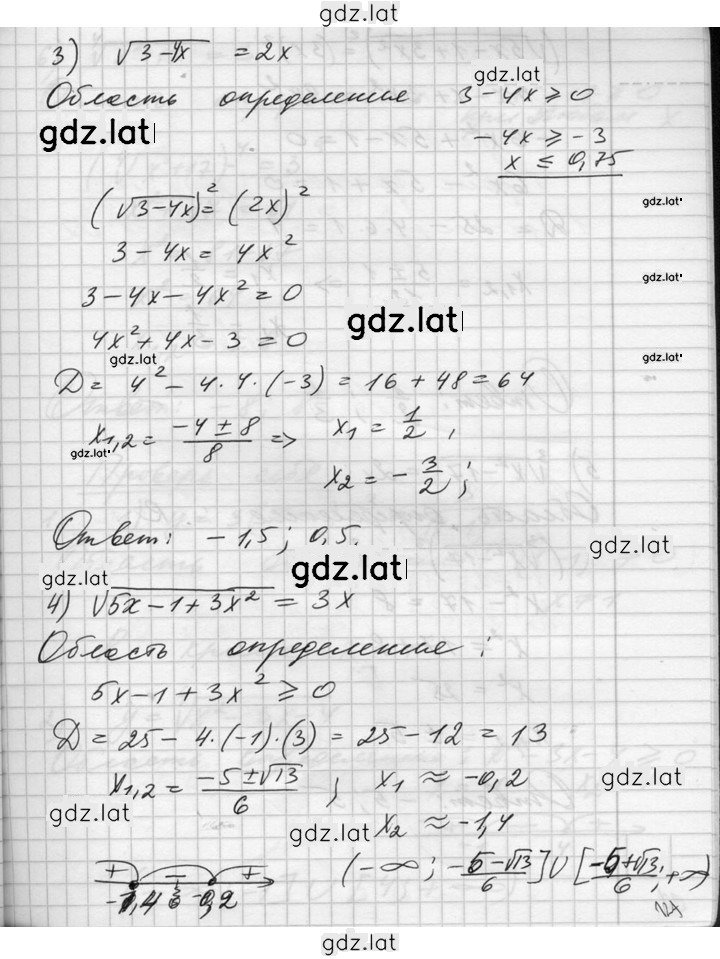 gdz.lat
3) √(3-4x) = 2x
gdz.lat
Область определения 3-4x ≥ 0
gdz.lat
-4x ≥ -3
x ≤ 0,75
(√(3-4x))² = (2x)²
gdz.lat
3-4x = 4x²
gdz.lat
3-4x-4x² = 0
gdz.lat
4x²+4x-3 = 0
gdz.lat
gdz.lat
D = 4² - 4·4·(-3) = 16+48 = 64
x₁,₂ = (-4±8)/8 => x₁ = 1/2,
gdz.lat
x₂ = -3/2;
Ответ: -1,5; 0,5.
gdz.lat
gdz.lat
gdz.lat
4) √(5x-1+3x²) = 3x
Область определения:
5x-1+3x² ≥ 0
D = 25-4·(-1)·(3) = 25-12 = 13
x₁,₂ = (-5±√13)/6; x₁ ≈ -0,2
gdz.lat
gdz.lat
x₂ ≈ -1,4
gdz.lat
+ - +
(-∞; (-5-√13)/6] ∪ [(-5+√13)/6; +∞)
-1,4 -0,2
gdz.lat